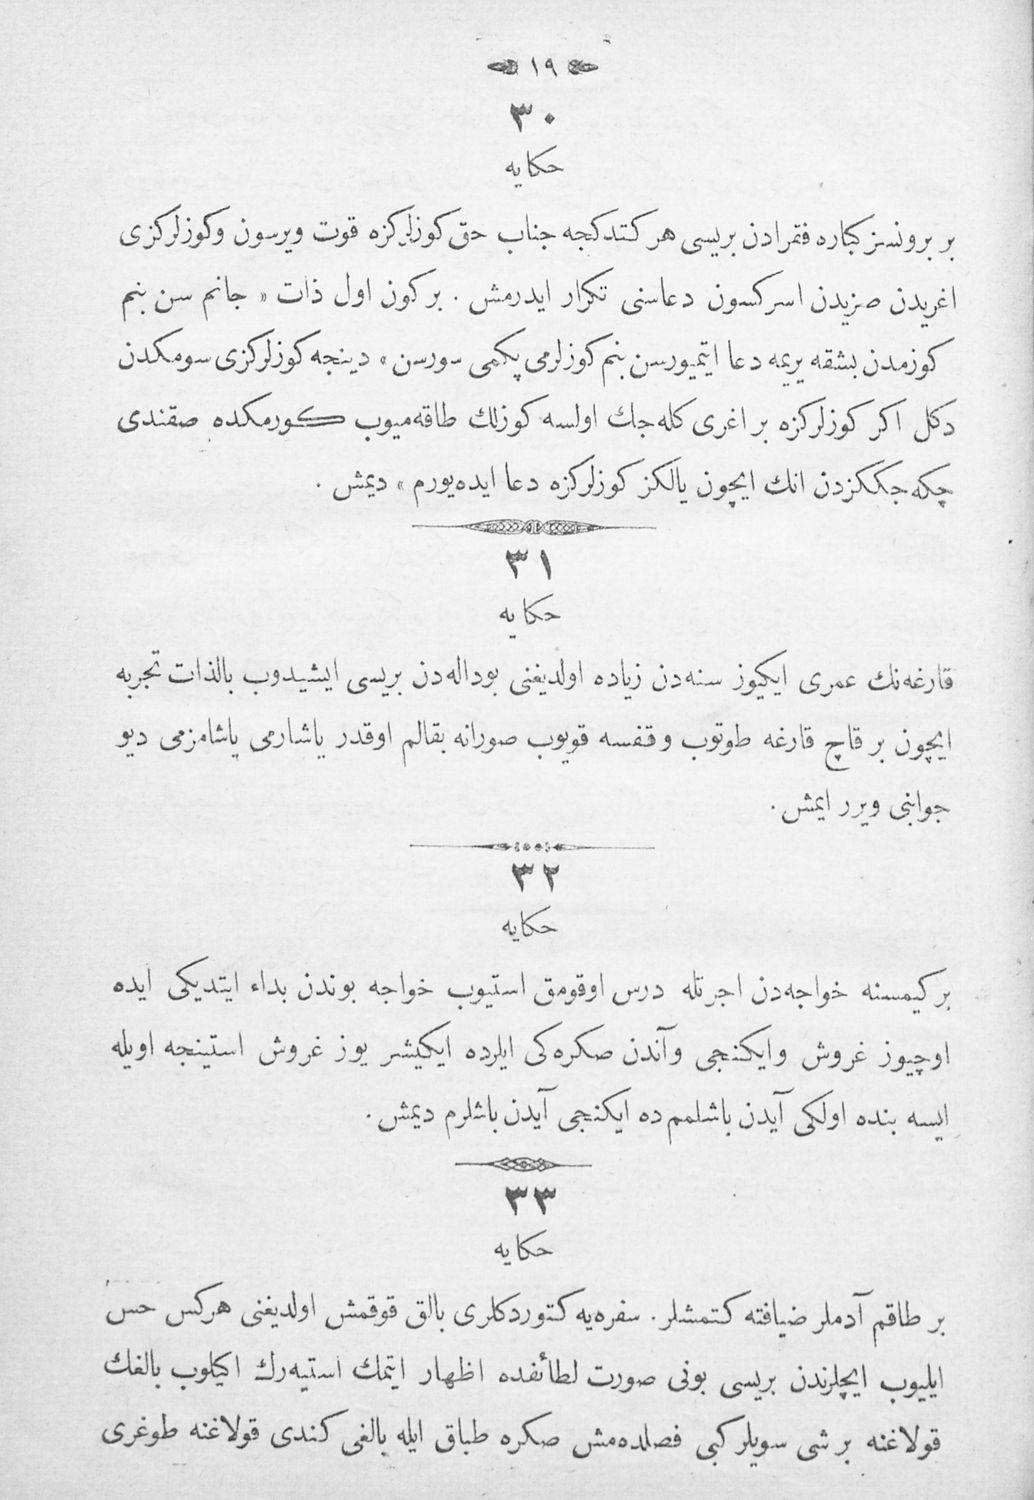 ١٩
٣٠
حكايه
بر برونسز كباره فقرادن بريسى هر كتدكجه جناب حق كوزلركزه قوت ويرسون وكوزلركزى
اغريدن صزيدن اسركسون دعاسنى تكرار ايدرمش . بر كون اول ذات « جانم سن بنم
كوزمدن بشقه يريمه دعا ايتميورسن بنم كوزلرمى پكمى سورسن » دينجه كوزلركزى سومكدن
دكل اكر كوزلركزه بر اغرى كله‌جك اولسه كوزلك طاقه‌ميوب كورمكده صقندى
چكه‌جككزدن انك ايچون يالكز كوزلركزه دعا ايده‌يورم » ديمش .
٣١
حكايه
قارغه‌نك عمرى ايكيوز سنه‌دن زياده اولديغنى بوداله‌دن بريسى ايشيدوب بالذات تجربه
ايچون بر قاچ قارغه طوتوب وقفسه قويوب صورانه بقالم اوقدر ياشارمى ياشامزمى ديو
جوابنى ويرر ايمش .
٣٢
حكايه
بر كيمسنه خواجه‌دن اجرتله درس اوقومق استيوب خواجه بوندن بداء ايتديكى ايده
اوچيوز غروش وايكنجى وآندن صكره‌كى ايلرده ايكيشر يوز غروش استينجه اويله
ايسه بنده اولكى آيدن باشلمم ده ايكنجى آيدن باشلرم ديمش .
٣٣
حكايه
بر طاقم آدملر ضيافته كتمشلر . سفره‌يه كتوردكلرى بالق قوقمش اولديغنى هركس حس
ايليوب ايچلرندن بريسى بونى صورت لطائفده اظهار ايتمك استيه‌رك اكيلوب بالغك
قولاغنه بر شى سويلر كبى فصلده‌مش صكره طباق ايله بالغى كندى قولاغنه طوغرى